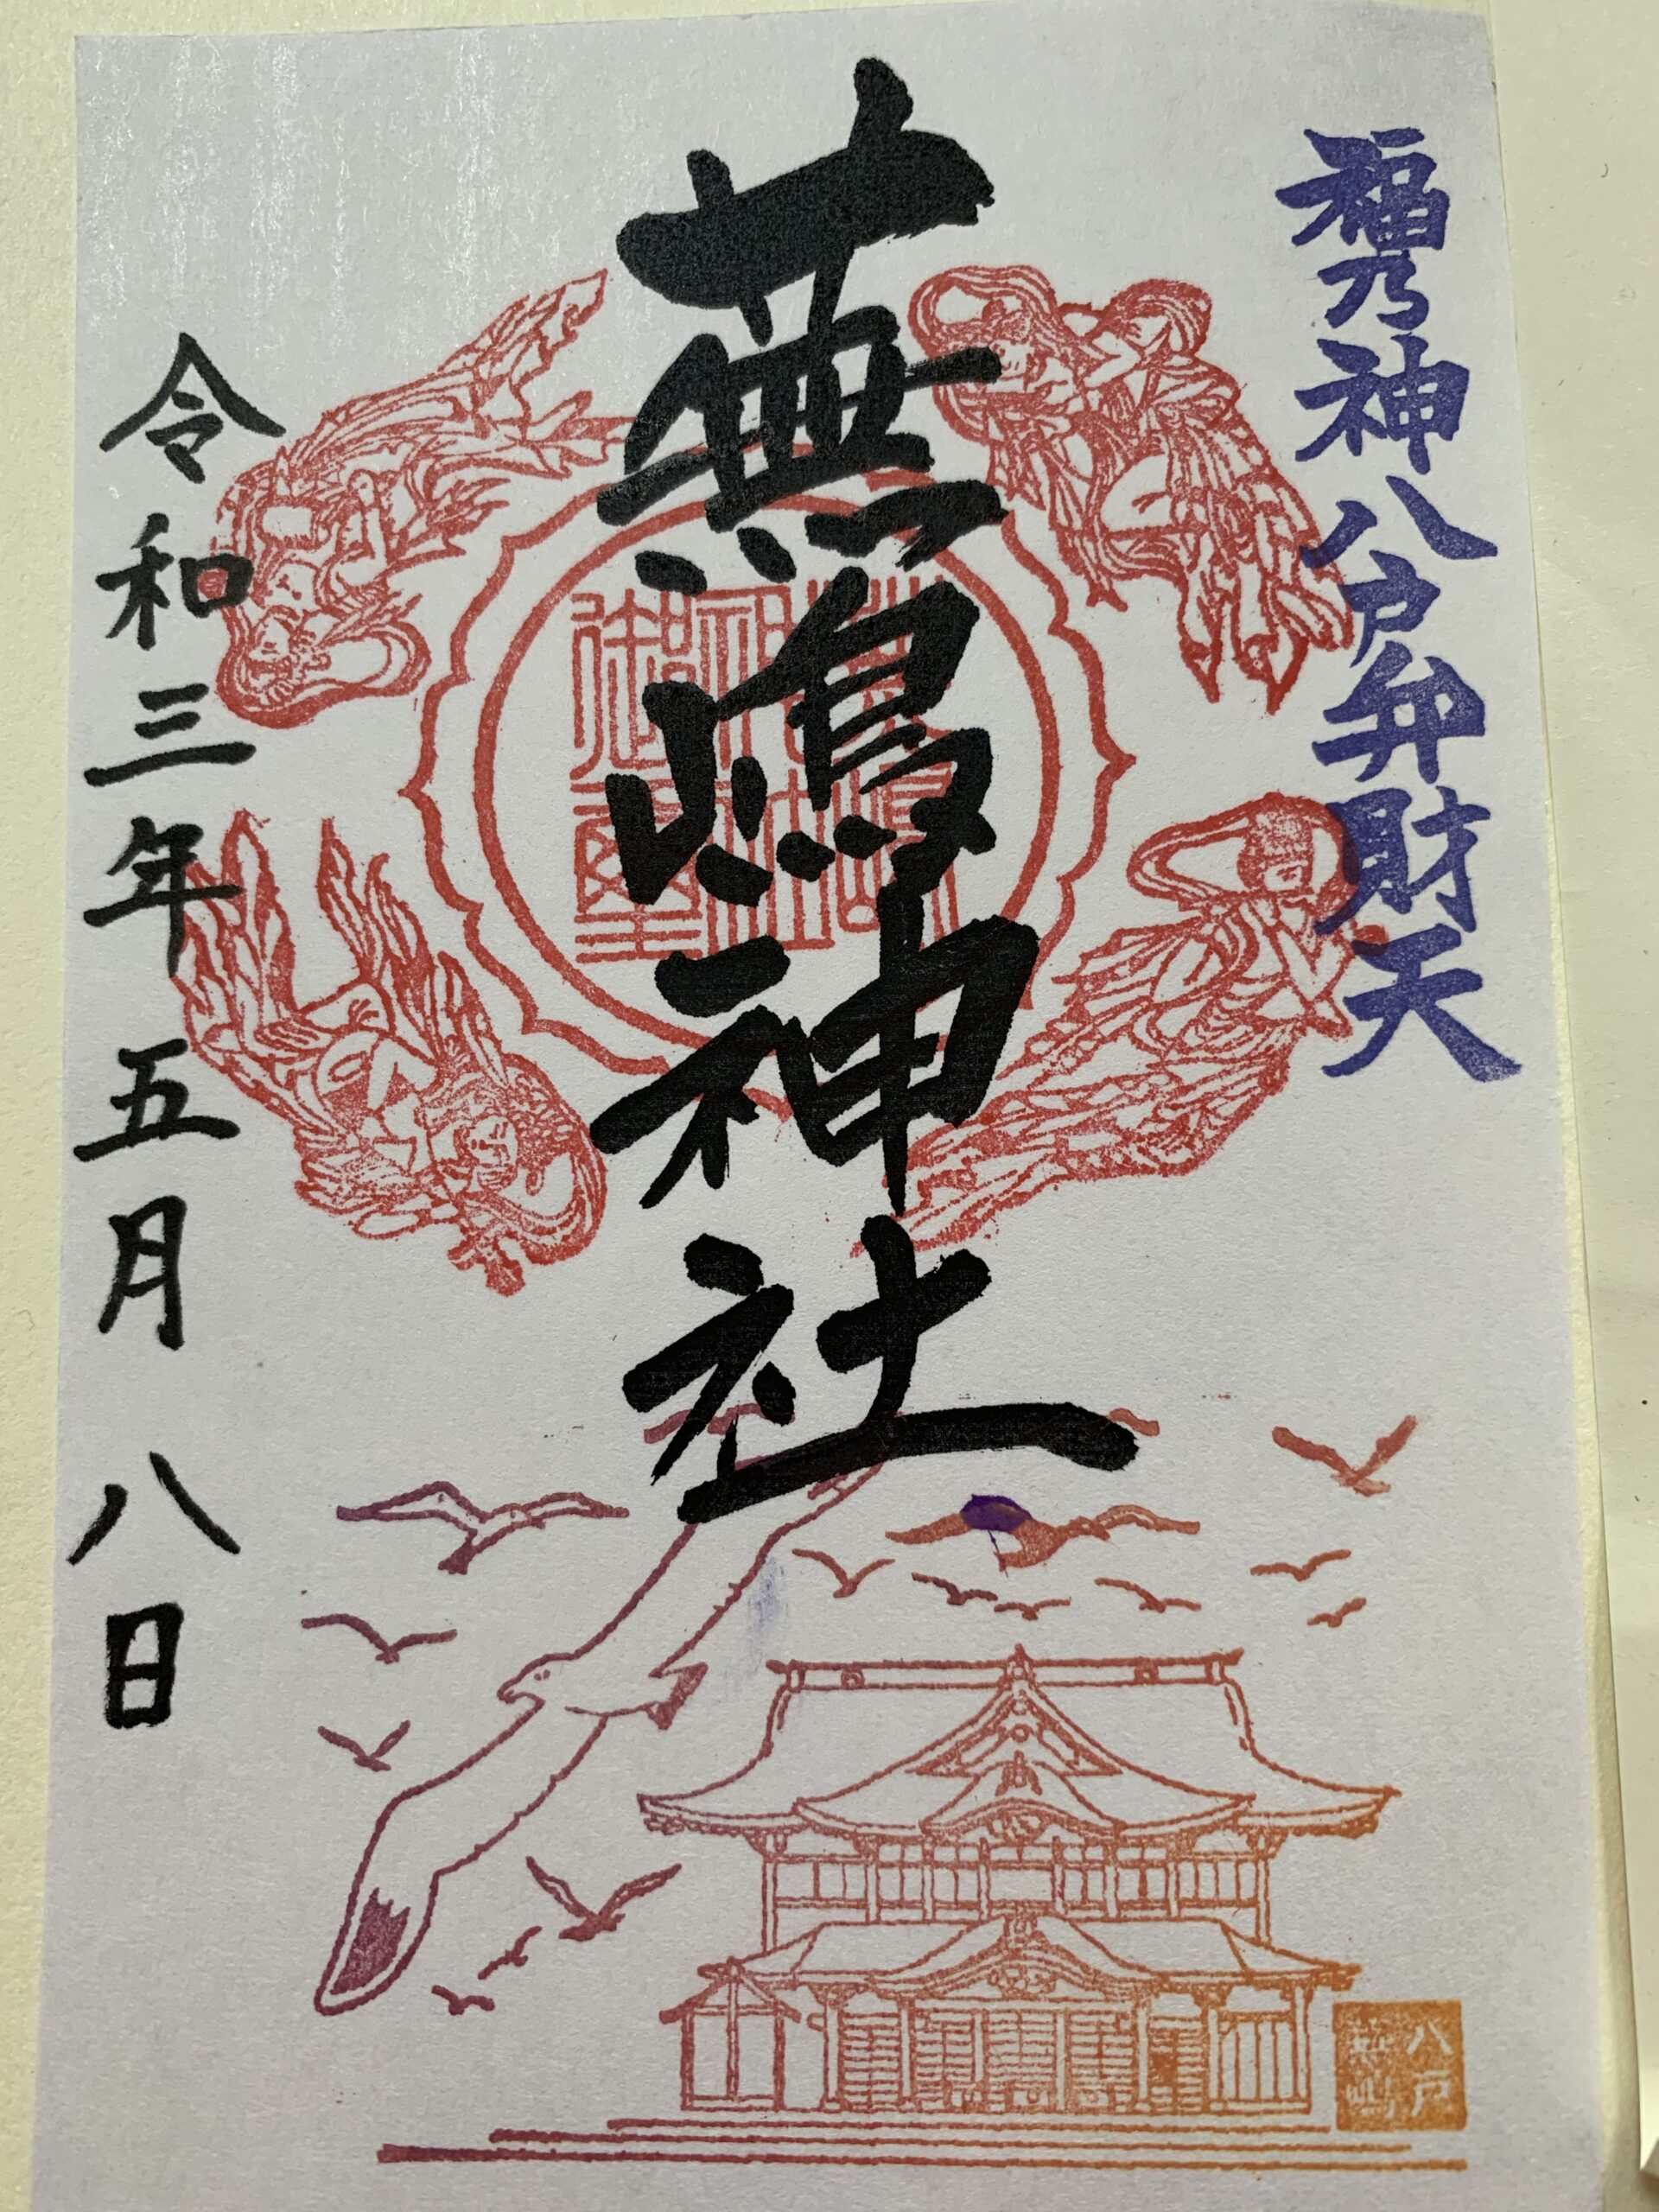 福乃神八戸弁財天
蕪嶋神社
令和三年五月八日
八戸
蕪嶋